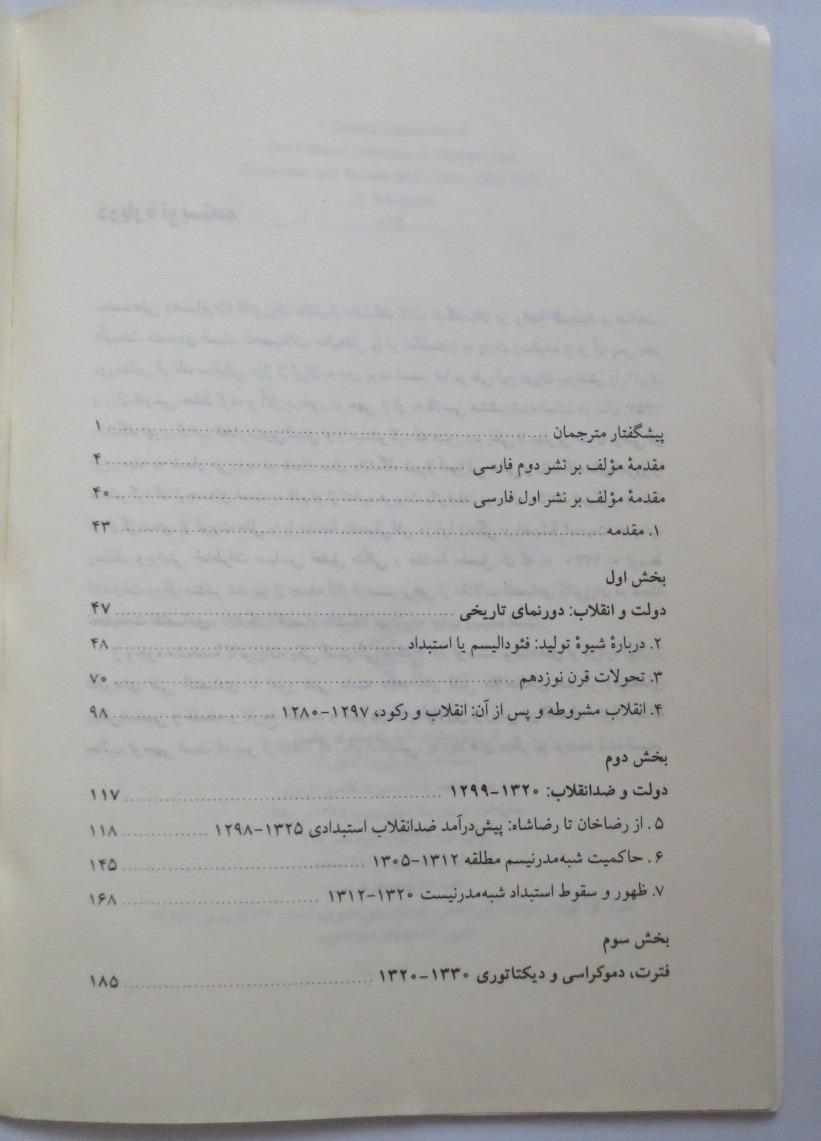 پیشگفتار مترجمان ..... ۱
مقدمهٔ مؤلف بر نشر دوم فارسی ..... ۴
مقدمهٔ مؤلف بر نشر اول فارسی ..... ۴۰
۱. مقدمه ..... ۴۳
بخش اول
دولت و انقلاب: دورنمای تاریخی ..... ۴۷
۲. دربارهٔ شیوهٔ تولید: فئودالیسم یا استبداد ..... ۴۸
۳. تحولات قرن نوزدهم ..... ۷۰
۴. انقلاب مشروطه و پس از آن: انقلاب و رکود، ۱۲۹۷-۱۲۸۰ ..... ۹۸
بخش دوم
دولت و ضدانقلاب: ۱۳۲۰-۱۲۹۹ ..... ۱۱۷
۵. از رضاخان تا رضاشاه: پیش‌درآمد ضدانقلاب استبدادی ۱۳۲۵-۱۲۹۸ ..... ۱۱۸
۶. حاکمیت شبه‌مدرنیسم مطلقه ۱۳۱۲-۱۳۰۵ ..... ۱۴۵
۷. ظهور و سقوط استبداد شبه‌مدرنیست ۱۳۲۰-۱۳۱۲ ..... ۱۶۸
بخش سوم
فترت، دموکراسی و دیکتاتوری ۱۳۳۰-۱۳۲۰ ..... ۱۸۵